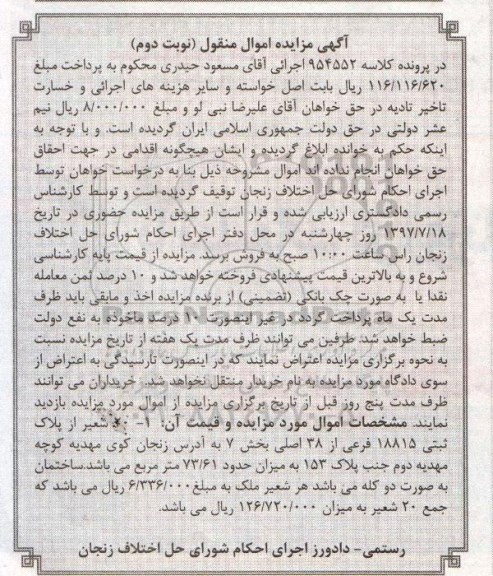 آگهی مزایده اموال منقول (نوبت دوم)
در پرونده کلاسه ۹۵۴۵۵۲ اجرائی آقای مسعود حیدری محکوم به پرداخت مبلغ
۱۱۶/۱۱۶/۶۲۰ ریال بابت اصل خواسته و سایر هزینه های اجرائی و خسارت
تاخیر تادیه در حق خواهان آقای علیرضا نبی لو و مبلغ ۸/۰۰۰/۰۰۰ ریال نیم
عشر دولتی در حق دولت جمهوری اسلامی ایران گردیده است. و با توجه به
اینکه حکم به خوانده ابلاغ گردیده و ایشان هیچگونه اقدامی در جهت احقاق
حق خواهان انجام نداده اند اموال مشروحه ذیل بنا به درخواست خواهان توسط
اجرای احکام شورای حل اختلاف زنجان توقیف گردیده است و توسط کارشناس
رسمی دادگستری ارزیابی شده و قرار است از طریق مزایده حضوری در تاریخ
۱۳۹۷/۷/۱۸ روز چهارشنبه در محل دفتر اجرای احکام شورای حل اختلاف
زنجان راس ساعت ۱۰:۰۰ صبح به فروش برسد. مزایده از قیمت پایه کارشناسی
شروع و به بالاترین قیمت پیشنهادی فروخته خواهد شد و ۱۰ درصد ثمن معامله
نقدا یا به صورت چک بانکی (تضمینی) از برنده مزایده اخذ و مابقی باید ظرف
مدت یک ماه پرداخت گردد در غیر اینصورت ۱۰ درصد ماخوذه به نفع دولت
ضبط خواهد شد. طرفین می توانند ظرف مدت یک هفته از تاریخ مزایده نسبت
به نحوه برگزاری مزایده اعتراض نمایند که در اینصورت تا رسیدگی به اعتراض از
سوی دادگاه مورد مزایده به نام خریدار منتقل نخواهد شد. خریداران می توانند
ظرف مدت پنج روز قبل از تاریخ برگزاری مزایده از اموال مورد مزایده بازدید
نمایند. مشخصات اموال مورد مزایده و قیمت آن: ۱- شعیر از پلاک
ثبتی ۱۸۸۱۵ فرعی از ۳۸ اصلی بخش ۷ به آدرس زنجان کوی مهدیه کوچه
مهدیه دوم جنب پلاک ۱۵۳ به میزان حدود ۷۳/۶۱ متر مربع می باشد.ساختمان
به صورت دو کله می باشد هر شعیر ملک به مبلغ۶/۳۳۶/۰۰۰ ریال می باشد که
جمع ۲۰ شعیر به میزان ۱۲۶/۷۲۰/۰۰۰ ریال می باشد.
رستمی- دادورز اجرای احکام شورای حل اختلاف زنجان